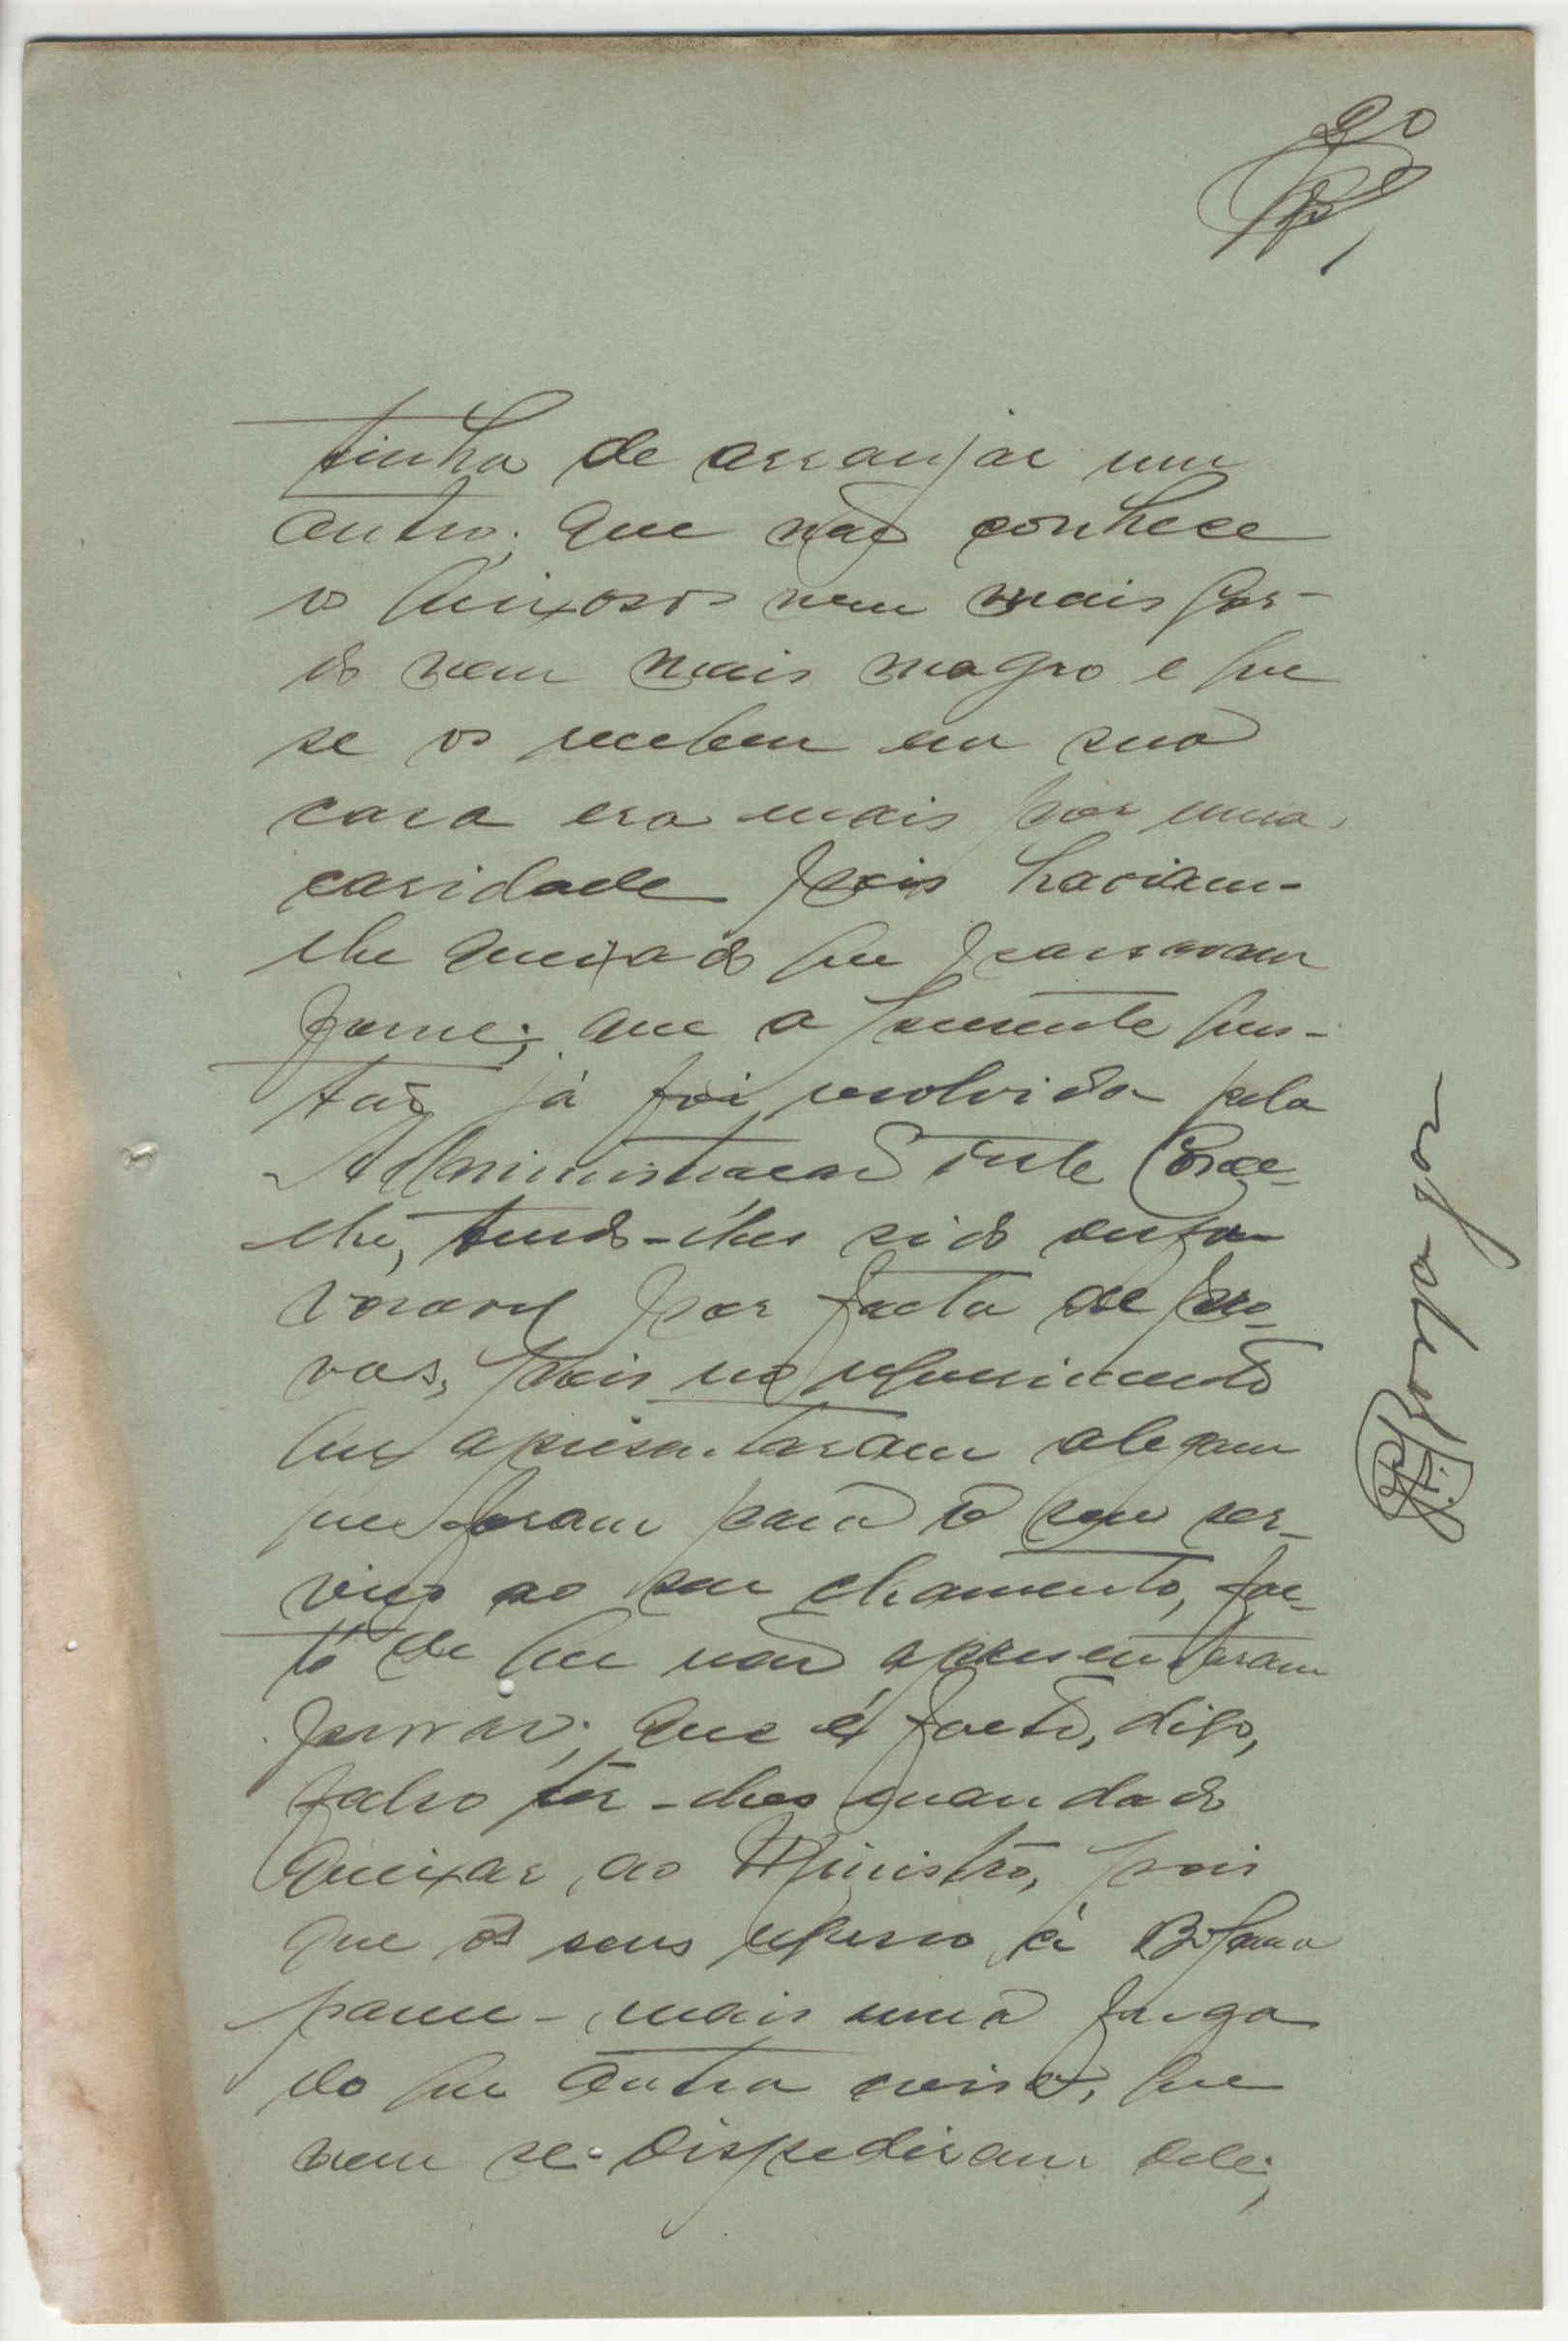 20
tinha de arranjar um
outro; que não conhece
os queixosos nem mais gor-
do nem mais magro e que
se os recebeu em sua
casa era mais por uma
caridade pois haviam-
lhe queixado que passavam
fome; que a presente ques-
tão já foi resolvida pela
Administracão deste Conce-
lho, tendo-lhes sido desfa-
voravel por facta de pro-
vas, pois no requerimento
que apresentaram alegam
que foram para o seu ser-
viço ao seu chamento, fac-
to de que não apresentaram
provas; que é facto, digo,
falso ter-lhes mandado
queixar, ao Ministro, pois
que os seus regresso á
parece mais uma fuga
do que outra coisa, que
nem se dispediram dele;